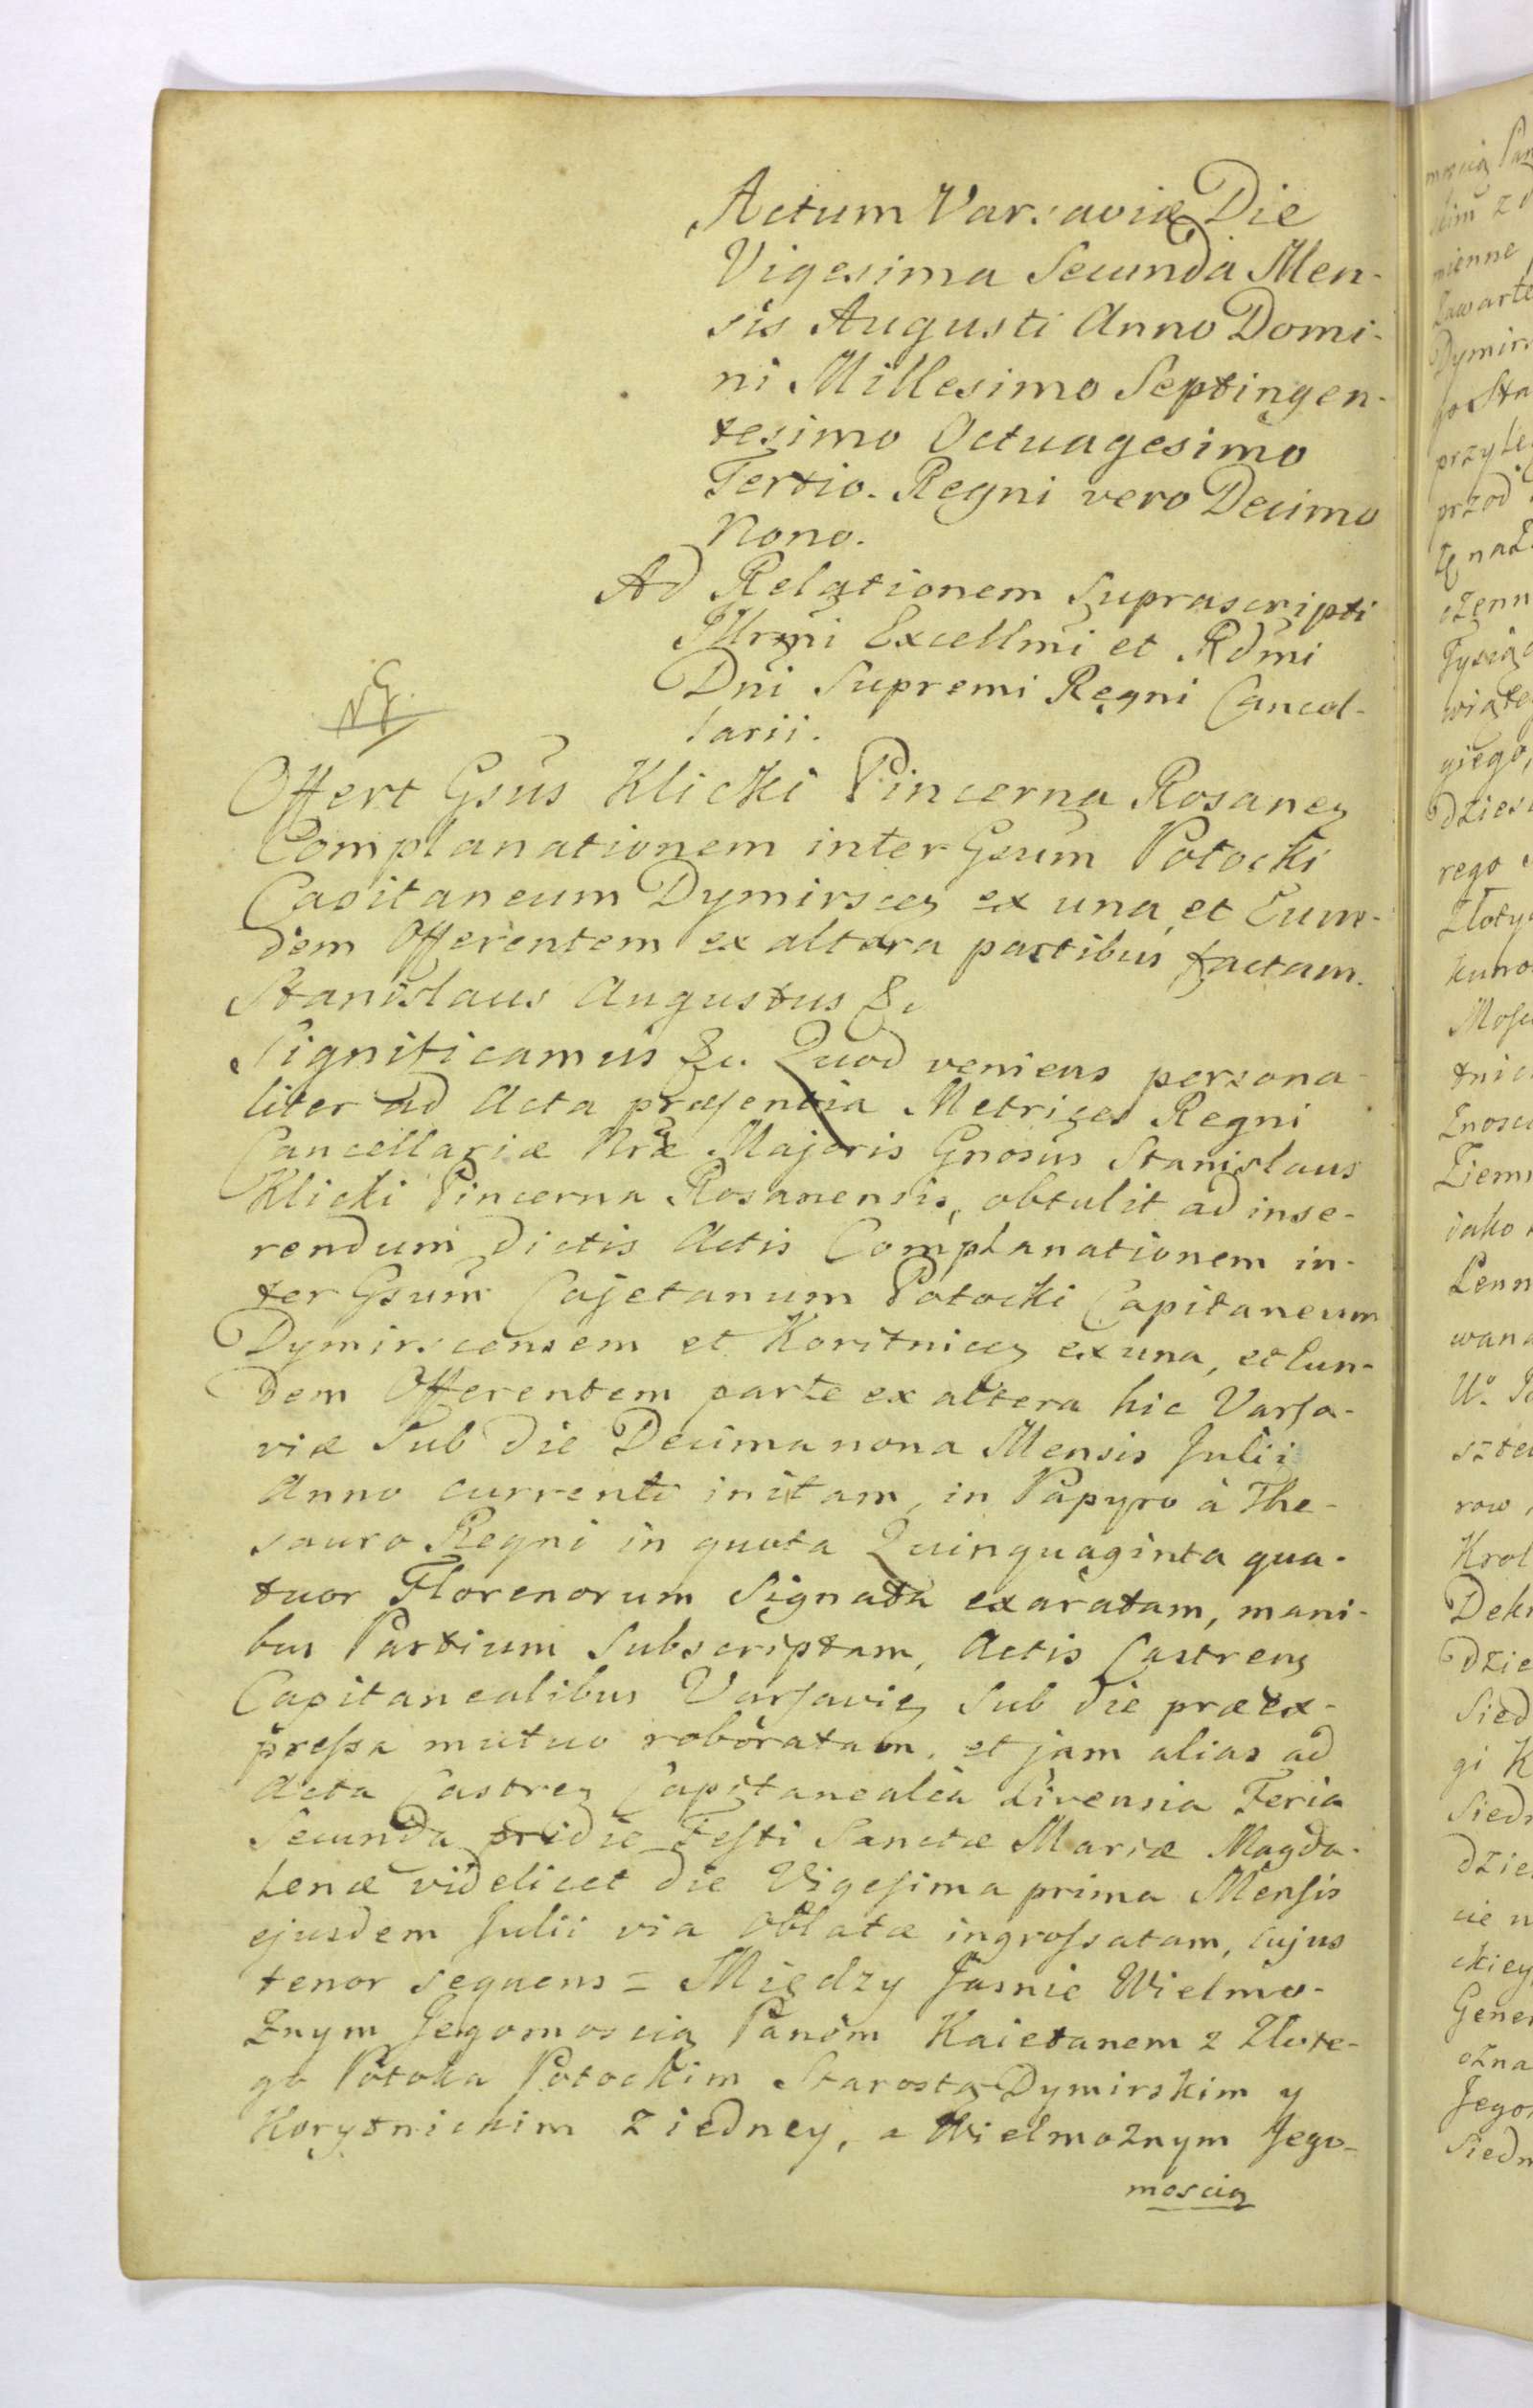 Actum Varsaviæ Die
Vigesima Secunda Men-
sis Augusti Anno Domi-
ni Millesimo Septingen-
tesimo Octuagesimo
Tertio. Regni vero Decimo
Nono.
Ad Relationem suprascripti
Illrmi Excellmi et Rdmi
Dni Supremi Regni Cancel-
larii.
Offert Gsus Klicki Pincerna Rosaneꝫ
Complanationem inter Gsum Potocki
Capitaneum Dymirsceꝫ ex una et Eun-
dem Offerentem ex altera partibus factam.
Stanislaus Augustus &c
Significamus &c. Quod veniens persona-
liter ad Acta præsentia Metrices Regni
Cancellariæ Nræ Majoris Gnosus Stanislaus
Klicki Pincerna Rosanensis, obtulit ad inse-
rendum dictis Actis Complanationem in-
ter Gsum Cajetanum Potocki Capitaneum
Dymirscensem et Koritniceꝫ ex una, et Eun-
dem Offerentem parte ex altera hic Varsa-
viæ Sub die Decimanona Mensis Julii
Anno currenti initam, in Papyro à The-
sauro Regni in quota Quinquaginta qua-
tuor Florenorum Signata exaratam, mani-
bus Partium Subscriptam, Actis Castrenꝫ
Capitanealibus Varsavieꝫ Sub die præex-
pressa mutuo roboratam, et jam alias ad
Acta Castreꝫ Capitanealia Livensia Feria
Secunda pridie Festi Sanctæ Mariæ Magda-
lenæ videlicet die Vigesima prima Mensis
ejusdem Julii via oblatæ ingrossatam, cujus
tenor sequens = Między Jasnie Wielmo-
żnym Jegomoscią Panem Kaietanem z Złote-
go Potoka Potockim Starostą Dymirskim y
Korytnickim z iedney, a Wielmożnym Jego-
moscią